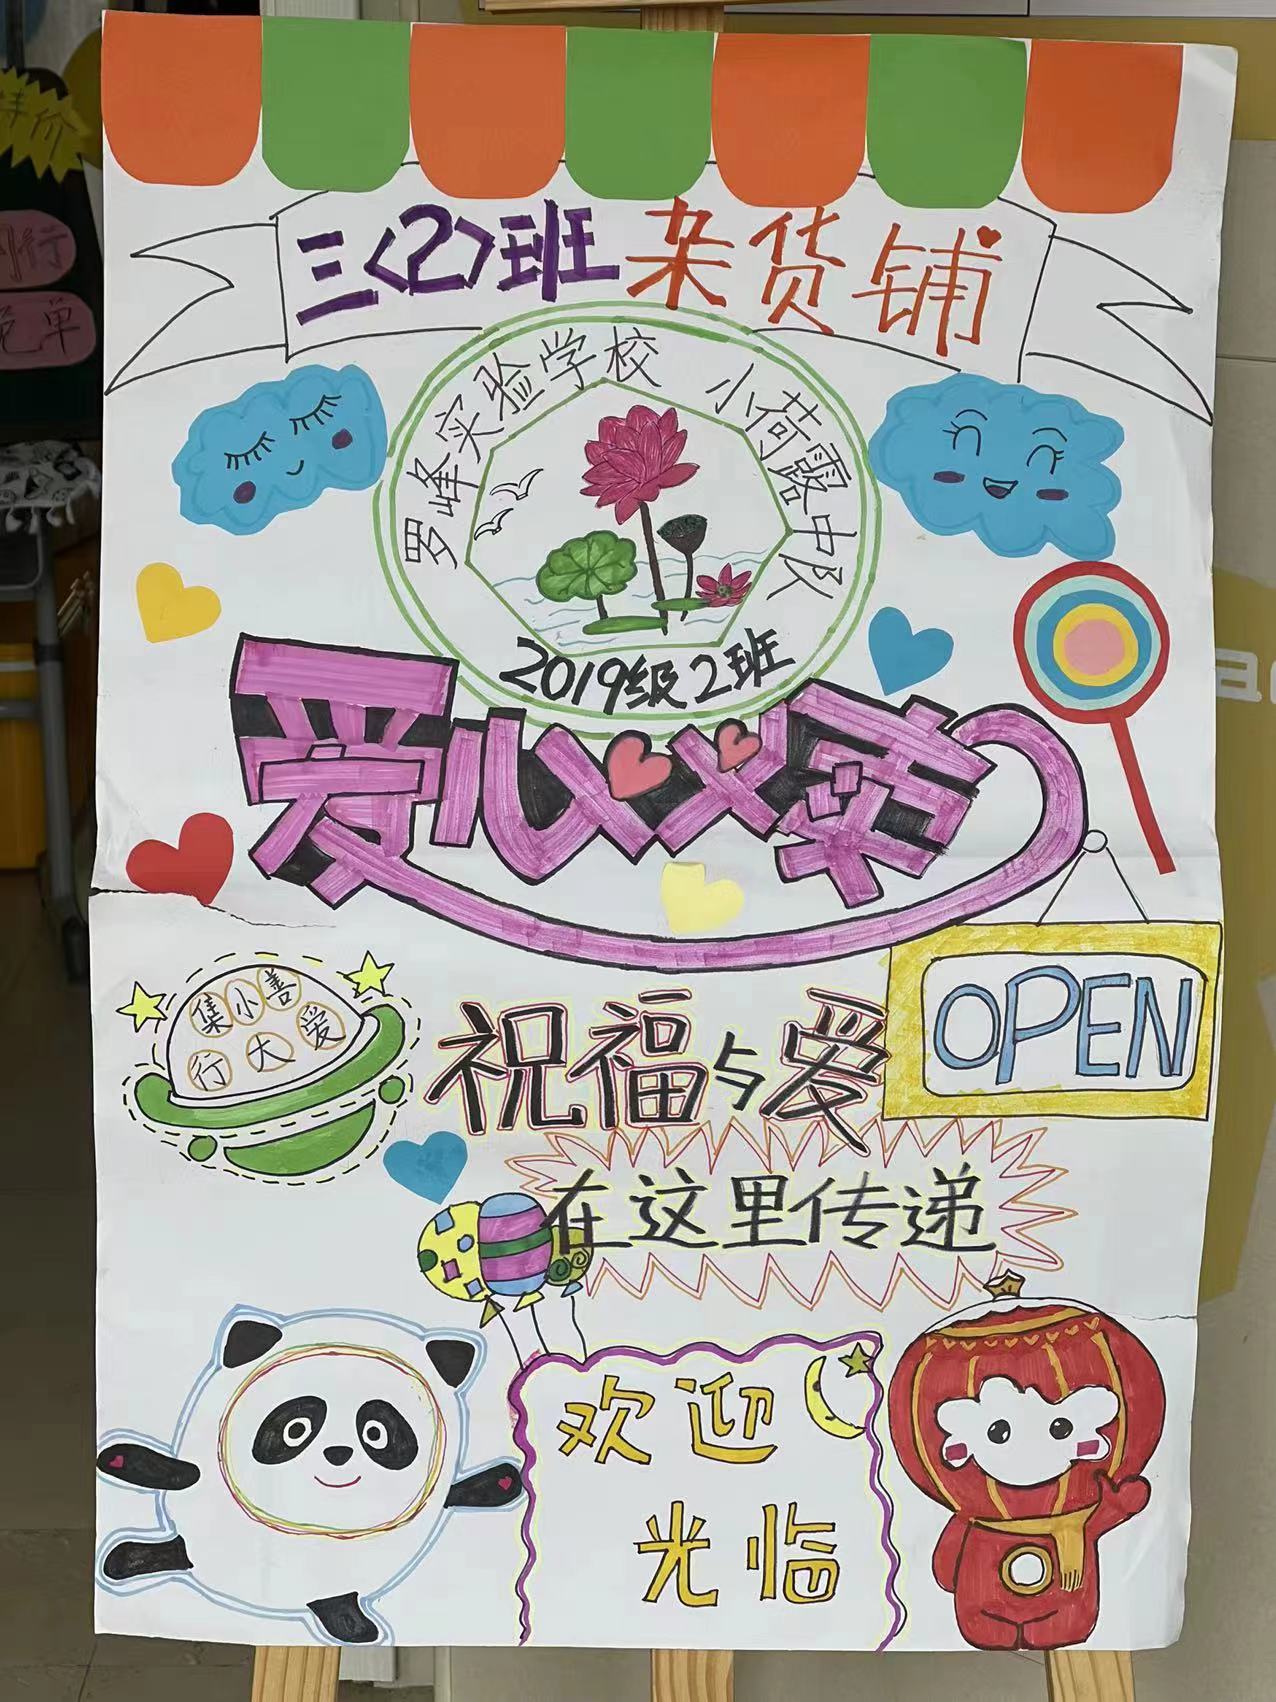 特价
行
免单
三<2>班 杂货铺
罗峰实验学校 小荷露中队
2019级2班
爱心义卖
集小善
行大爱
OPEN
祝福与爱
在这里传递
欢迎
光临